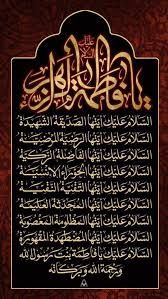 يا فاطمة الزهراء
السَّلامُ عَلَيْكِ أَيَّتُهَا الصِّدِّيقَةُ الشَّهِيدَةُ
السَّلامُ عَلَيْكِ أَيَّتُهَا الرَّضِيَّةُ الْمَرْضِيَّةُ
السَّلامُ عَلَيْكِ أَيَّتُهَا الْفَاضِلَةُ الزَّكِيَّةُ
السَّلامُ عَلَيْكِ أَيَّتُهَا الْحَوْرَاءُ الْإِنْسِيَّةُ
السَّلامُ عَلَيْكِ أَيَّتُهَا التَّقِيَّةُ النَّقِيَّةُ
السَّلامُ عَلَيْكِ أَيَّتُهَا الْمُحَدَّثَةُ الْعَلِيمَةُ
السَّلامُ عَلَيْكِ أَيَّتُهَا الْمَظْلُومَةُ الْمَغْصُوبَةُ
السَّلامُ عَلَيْكِ أَيَّتُهَا الْمُضْطَهَدَةُ الْمَقْهُورَةُ
السَّلامُ عَلَيْكِ يَا فَاطِمَةُ بِنْتَ رَسُولِ اللهِ
وَرَحْمَةُ اللهِ وَبَرَكَاتُهُ